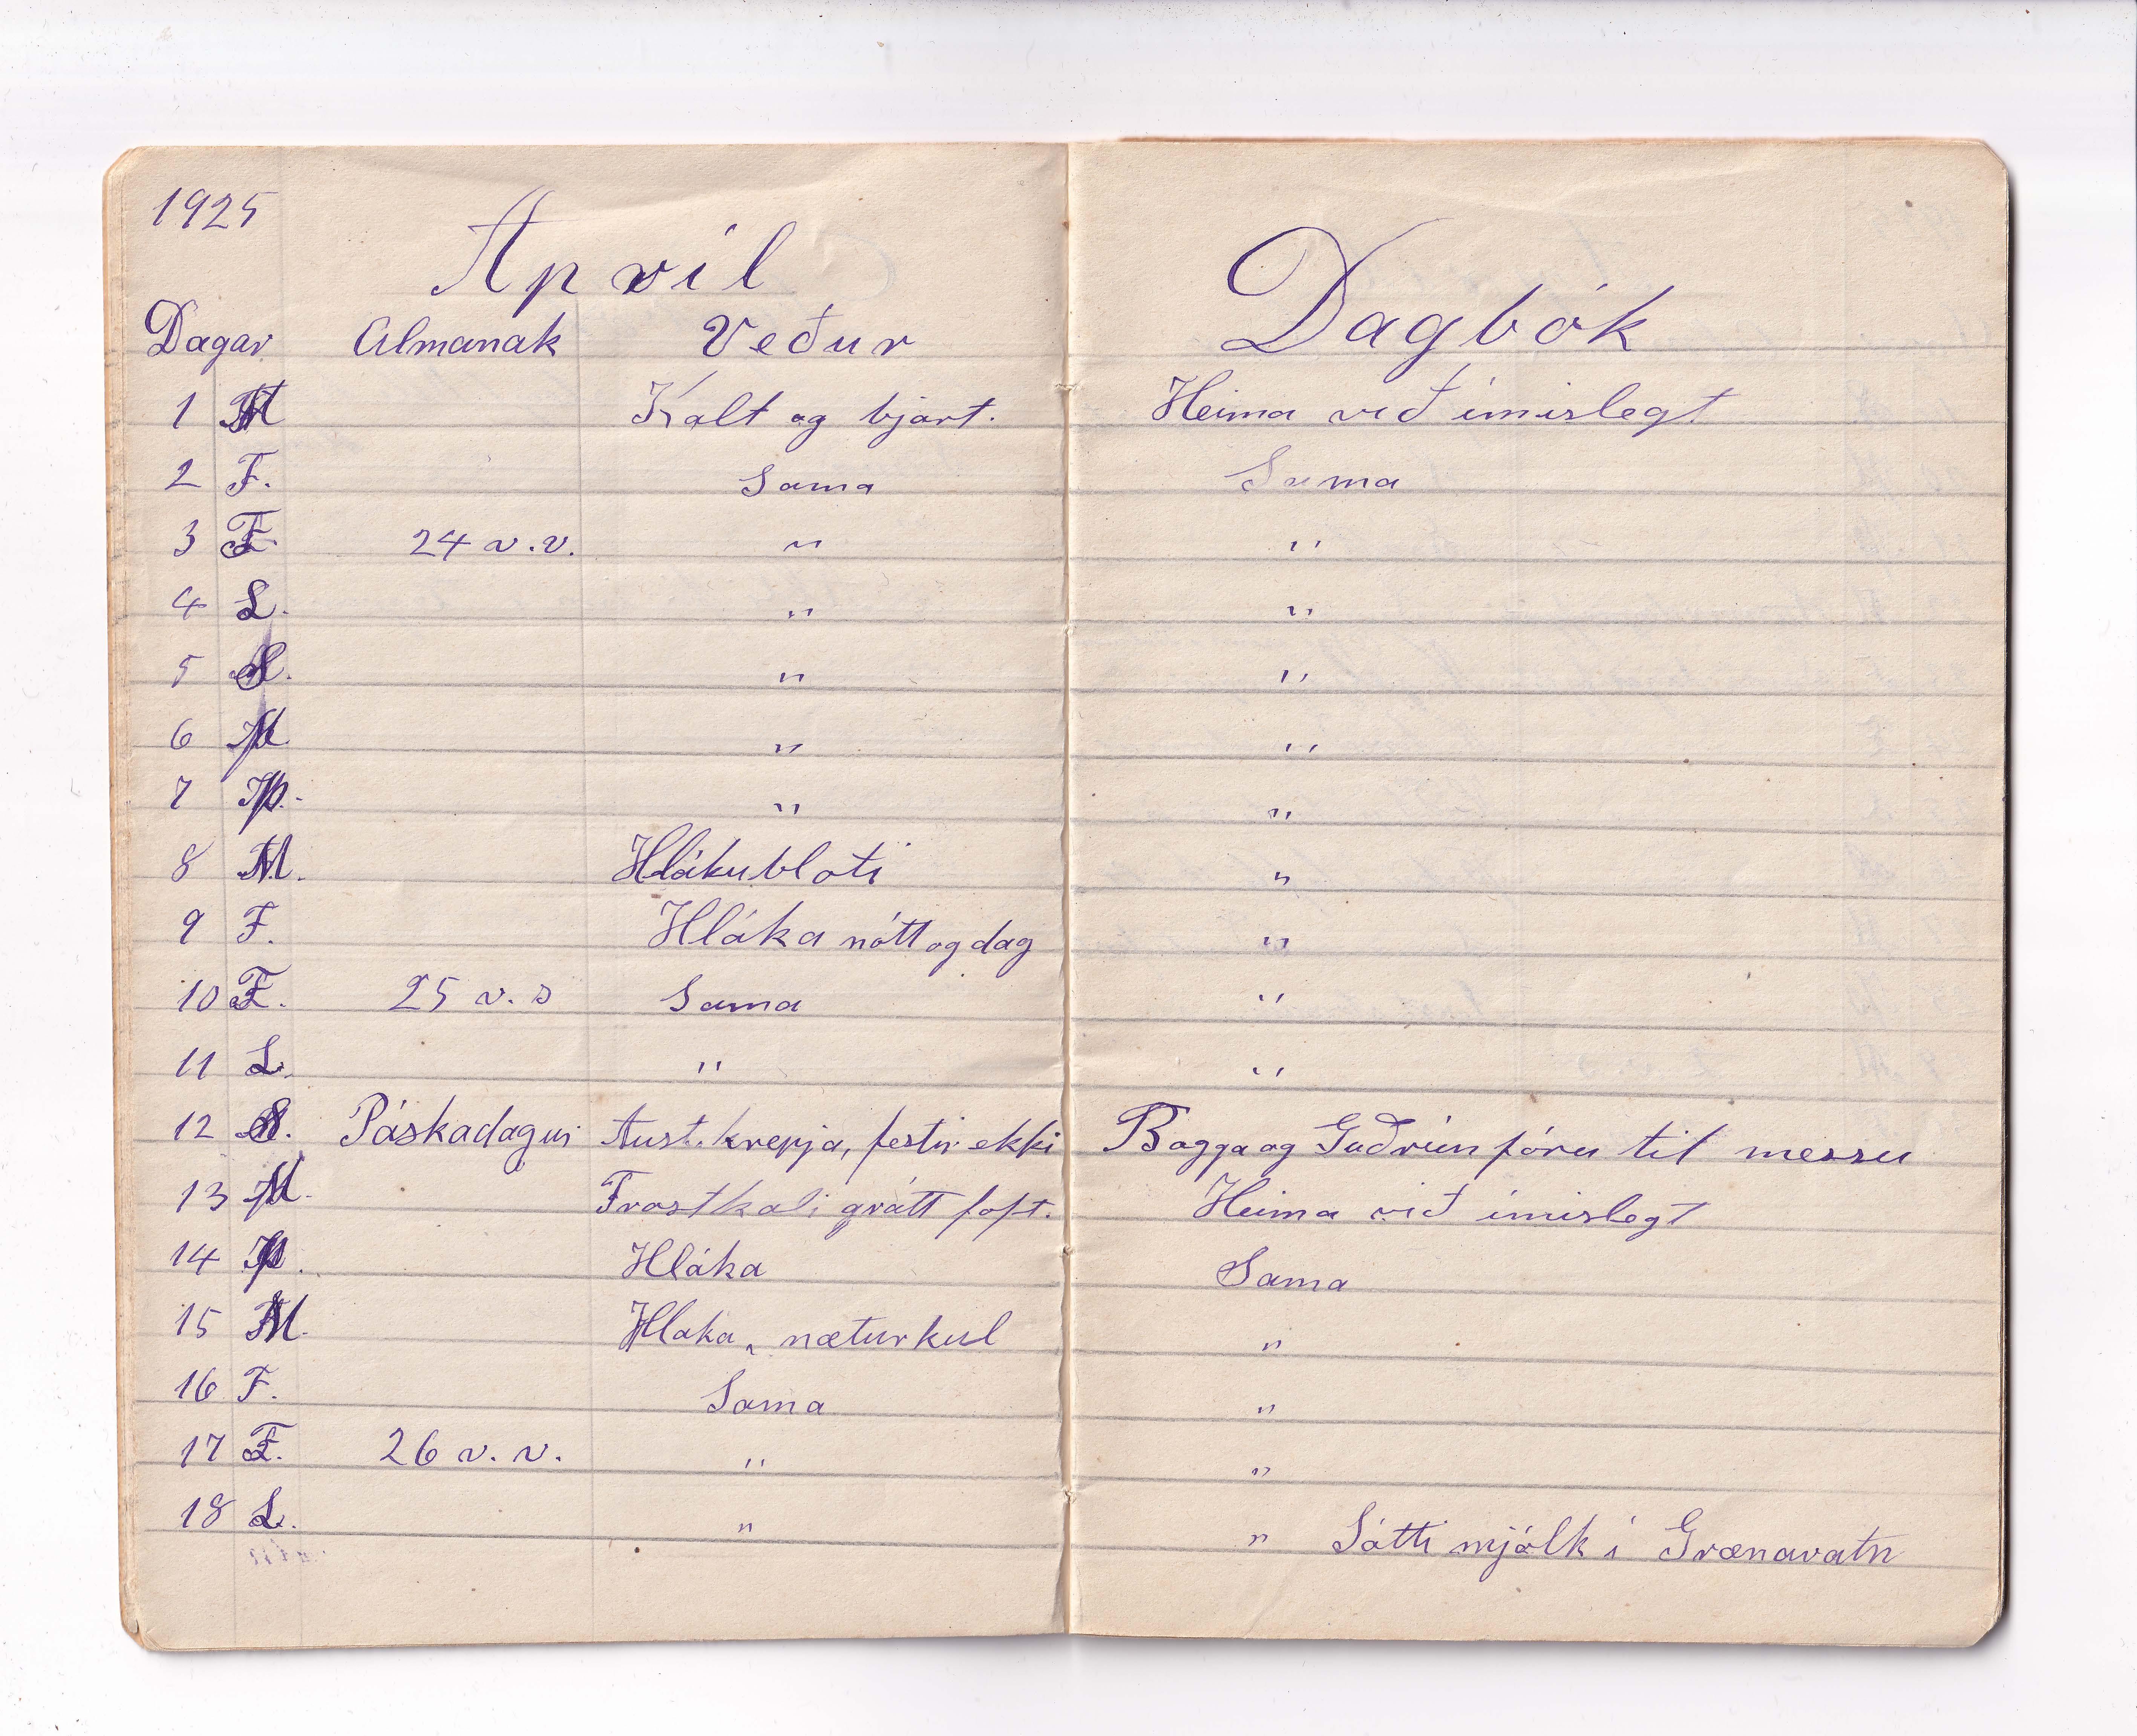 1925
April
Dagar Almanak Veður Dagbók
1 M Kalt og bjart. Heima við ímislegt
2 F. Sama Sama
3 F. 24 v.v. " "
4 L. " "
5 S. " "
6 M. " "
7 Þ. " "
8 M. Hlákubloti "
9 F. Hláka nótt og dag "
10 F. 25 v. Sama "
11 L. " "
12 S. Páskadagur Aust. krepja, festir ekki Bogga og Guðrún fóru til messu
13 M. Frostkali grátt Heima við ímislegt
14 Þ. Hláka Sama
15 M. Hláka, næturkul "
16 F. Sama "
17 F. 26 v. v. " "
18 L. " " Sótti mjólk í Grænavatn